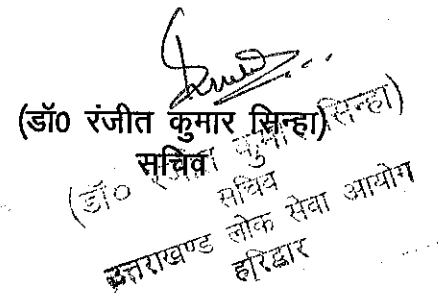 (डॉ0 रंजीत कुमार सिन्हा)
सचिव
(डॉ० रंजीत कुमार सिन्हा)
सचिव
उत्तराखण्ड लोक सेवा आयोग
हरिद्वार